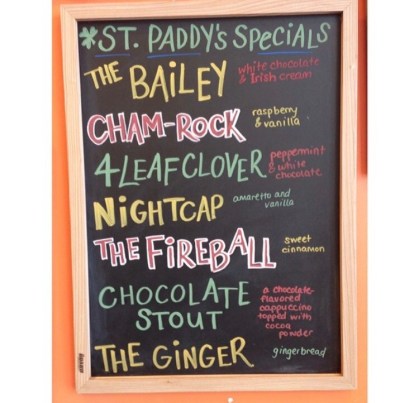 *ST. PADDY's SPeCiALS
THE BAILEY white chocolate
& Irish cream
CHAM-ROCK raspberry
& vanilla
4 LEAF CLOVER peppermint
& white
chocolate
NiGHTCAP amaretto and
vanilla
THE FiREBALL sweet
cinnamon
CHOCOLATE
STOUT
a chocolate-
flavored
cappuccino
topped with
cocoa
powder
THE GINGER gingerbread